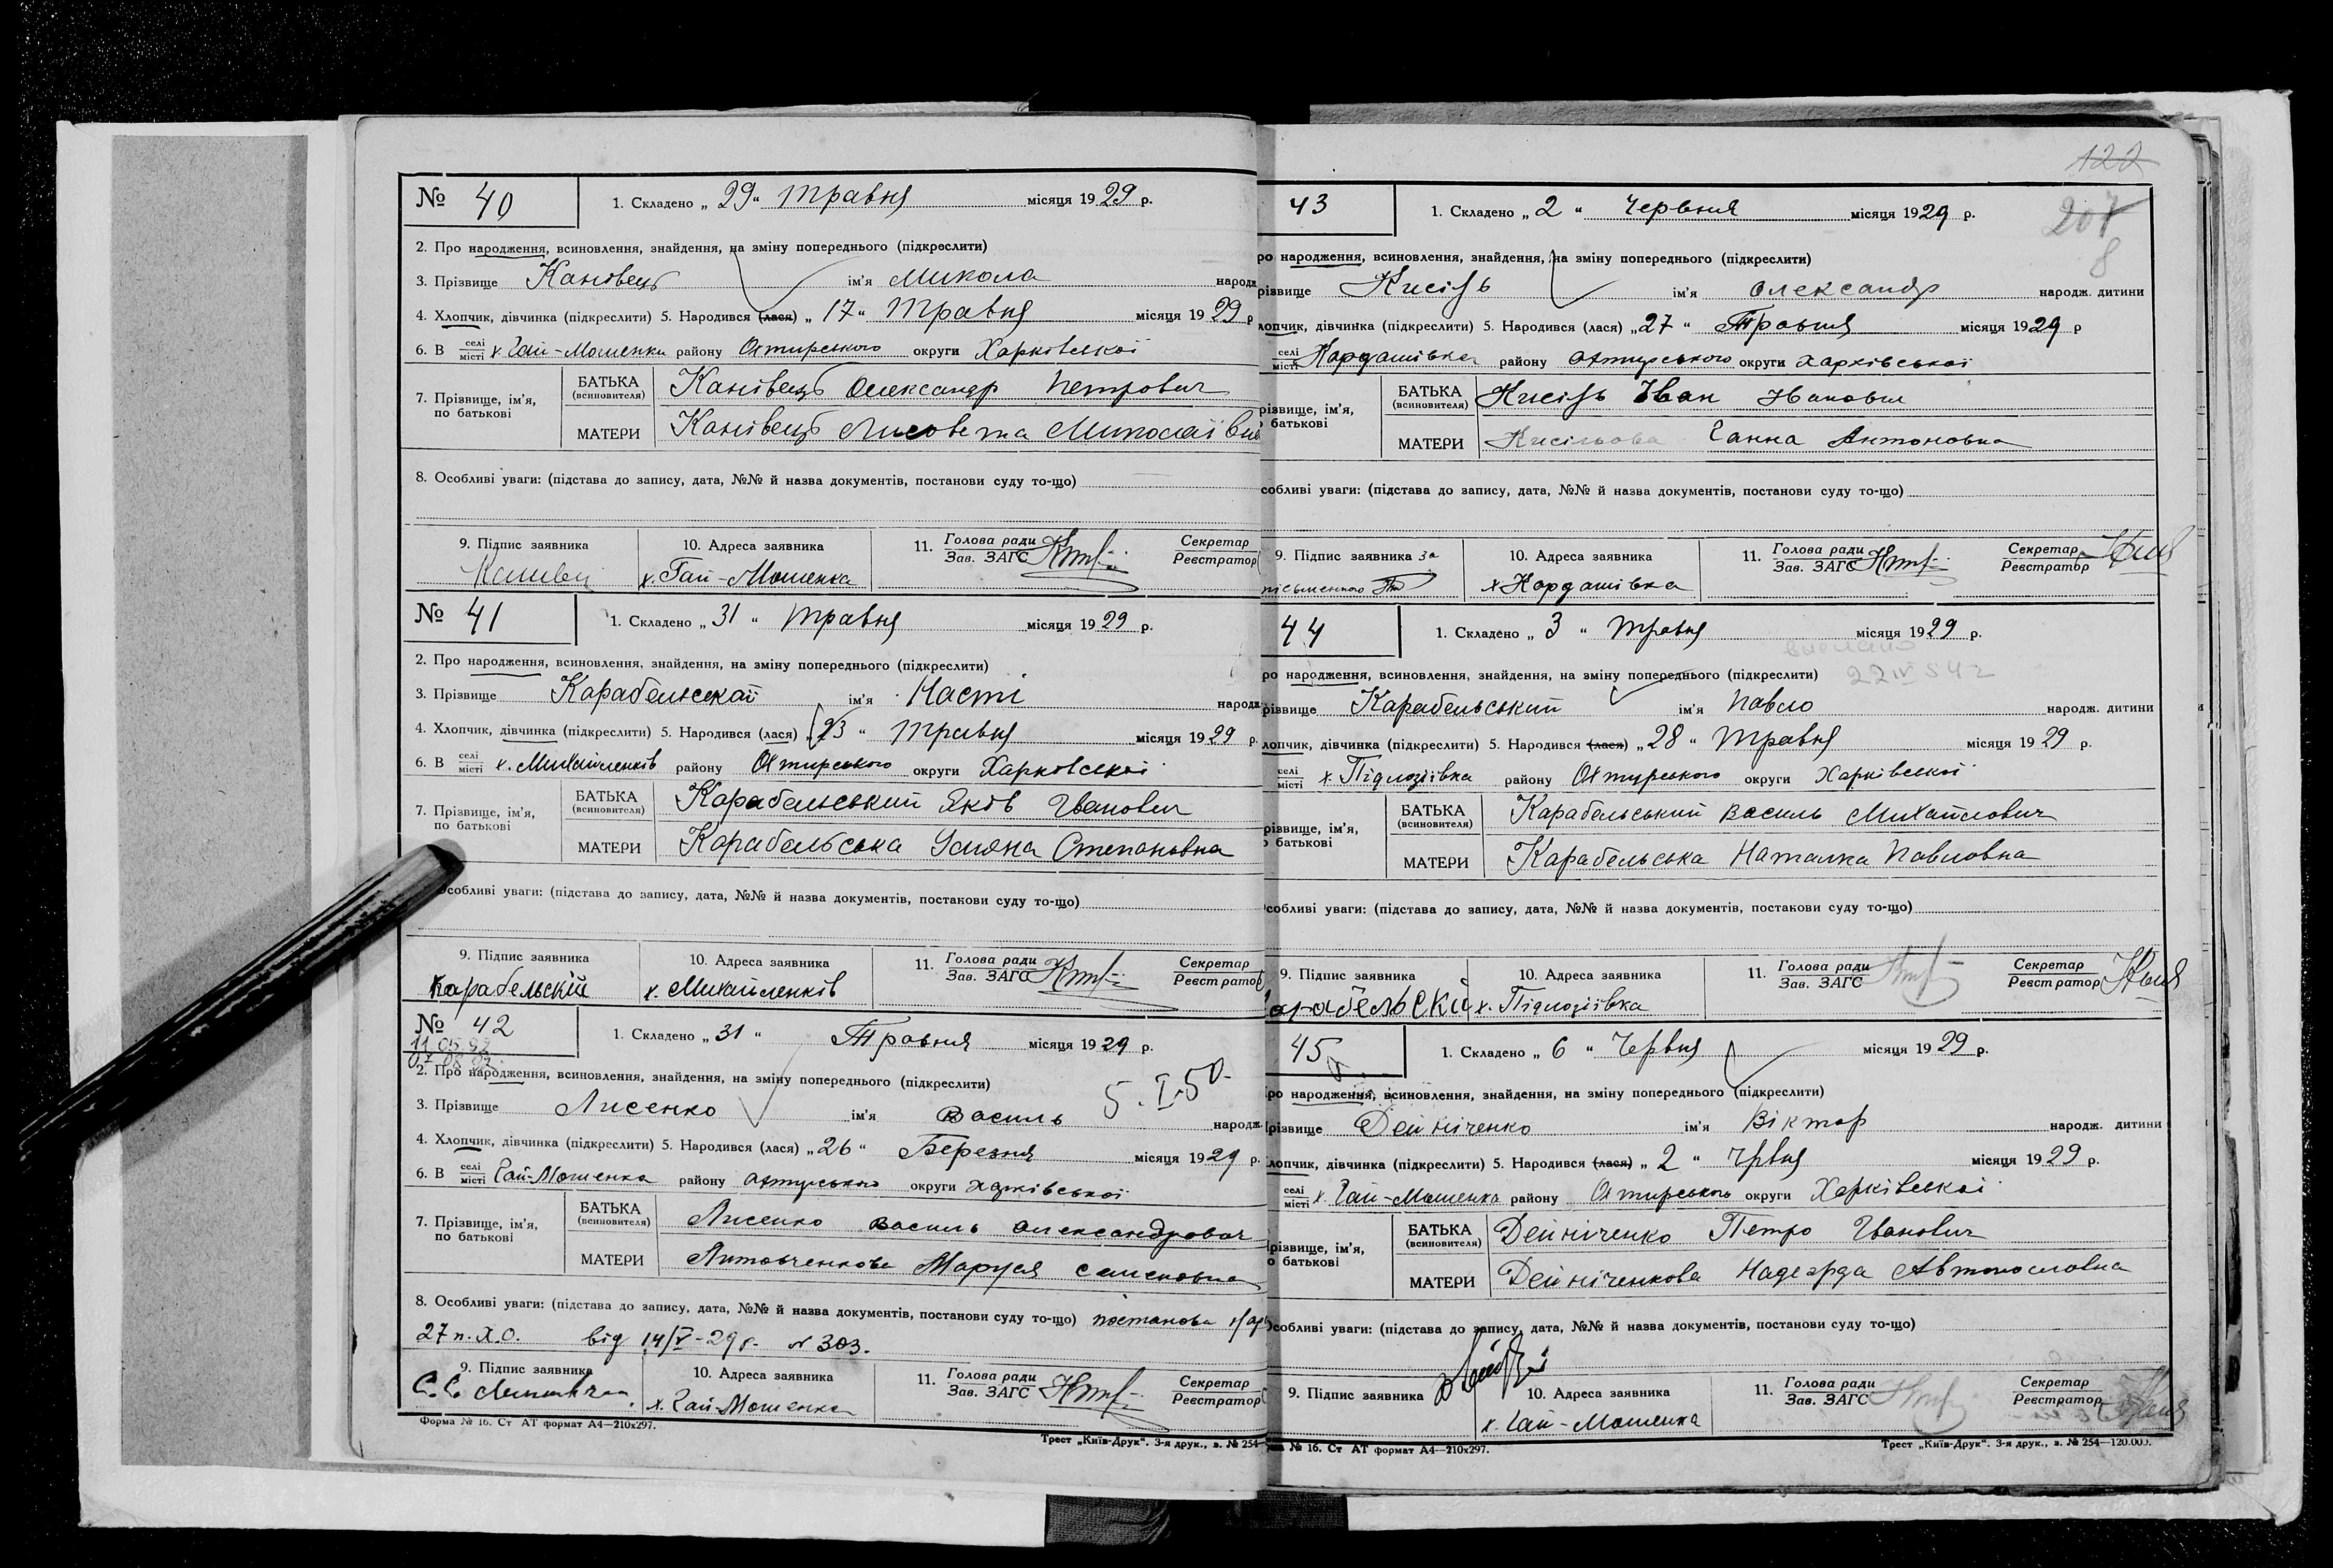 № 40
1. Складено „ 29 “ Травня місяця 19 29 р.
2. Про народження, всиновлення, знайдення, на зміну попереднього (підкреслити)
3. Прізвище Канівець ім'я Микола народж
4. Хлопчик, дівчинка (підкреслити) 5. Народився (лася) „ 17 “ Травня місяця 19 29 р
6. В селі місті х. Гай-Мошенки району Охтирського округи Харківської
7. Прізвище, ім'я, по батькові
БАТЬКА (всиновителя) Канівець Олександр Петрович
МАТЕРИ Канівець Лисовета Миколаївна
8. Особливі уваги: (підстава до запису, дата, №№ й назва документів, постанови суду то-що)
9. Підпис заявника
10. Адреса заявника х. Гай-Мошенка
11. Голова ради Зав. ЗАГС
Секретар Реєстратор
№ 41
1. Складено „ 31 “ Травня місяця 19 29 р.
2. Про народження, всиновлення, знайдення, на зміну попереднього (підкреслити)
3. Прізвище Карабельської ім'я Насті народж
4. Хлопчик, дівчинка (підкреслити) 5. Народився (лася) „ 23 “ Травня місяця 19 29 р.
6. В селі місті х. Михайленків району Охтирського округи Харковської
7. Прізвище, ім'я, по батькові
БАТЬКА (всиновителя) Карабельський Яків Іванович
МАТЕРИ Карабельська Уляна Степановна
Особливі уваги: (підстава до запису, дата, №№ й назва документів, постакови суду то-що)
9. Підпис заявника Карабельскій
10. Адреса заявника х. Михайленків
11. Голова ради Зав. ЗАГС
Секретар Реєстратор
№ 42
11 05 92
07 08 92
1. Складено „ 31 “ Травня місяця 19 29 р.
2. Про народження, всиновлення, знайдення, на зміну попереднього (підкреслити)
5.I.50
3. Прізвище Лисенко ім'я Василь народж
4. Хлопчик, дівчинка (підкреслити) 5. Народився (лася) „ 26 “ Березня місяця 19 29 р.
6. В селі місті Гай-Мошенка району Охтирського округи харківської
7. Прізвище, ім'я, по батькові
БАТЬКА (всиновителя) Лисенко Василь Олександрович
МАТЕРИ Литовченкова Маруся Семеновна
8. Особливі уваги: (підстава до запису, дата, №№ й назва документів, постанови суду то-що) постанова Нар
27 п. Х.О. від 14/V-29 р. N 303.
9. Підпис заявника
10. Адреса заявника х. Гай-Мошенка
11. Голова ради Зав. ЗАГС
Секретар Реєстратор
Форма № 16. Ст АТ формат А4—210х297.
Трест „Київ-Друк“. 3-я друк., з. № 254—
122
207
8
43
1. Складено „ 2 “ Червня місяця 19 29 р.
ро народження, всиновлення, знайдення, на зміну попереднього (підкреслити)
різвище Кисіль ім'я Олександр народж. дитини
лопчик, дівчинка (підкреслити) 5. Народився (лася) „ 27 “ Травня місяця 19 29 р
селі місті Кардашівка району Охтирського округи Харківської
різвище, ім'я, батькові
БАТЬКА (всиновителя) Кисіль Іван
МАТЕРИ Кисільова Ганна Антоновна
собливі уваги: (підстава до запису, дата, №№ й назва документів, постанови суду то-що)
9. Підпис заявника за письменного
10. Адреса заявника х Кардашівка
11. Голова ради Зав. ЗАГС
Секретар Реєстратор
44
1. Складено „ 3 “ Травня місяця 19 29 р.
22 IV 54 г
ро народження, всиновлення, знайдення, на зміну попереднього (підкреслити)
різвище Карабельський ім'я Павло народж. дитини
лопчик, дівчинка (підкреслити) 5. Народився (лася) „ 28 “ Травня місяця 19 29 р.
селі місті х. Підлозіївка району Охтирського округи Харківської
різвище, ім'я, батькові
БАТЬКА (всиновителя) Карабельський Василь Михайлович
МАТЕРИ Карабельська Наталка Павловна
собливі уваги: (підстава до запису, дата, №№ й назва документів, постакови суду то-що)
9. Підпис заявника арабельский
10. Адреса заявника х. Підлозіївка
11. Голова ради Зав. ЗАГС
Секретар Реєстратор
45
1. Складено „ 6 “ Червня місяця 19 29 р.
ро народження, всиновлення, знайдення, на зміну попереднього (підкреслити)
різвище Дейніченко ім'я Віктор народж. дитини
лопчик, дівчинка (підкреслити) 5. Народився (лася) „ 2 “ Чрвня місяця 19 29 р.
селі місті х. Гай-Мошенка району Охтирського округи Харківської
різвище, ім'я, о батькові
БАТЬКА (всиновителя) Дейніченко Петро Іванович
МАТЕРИ Дейніченкова Надежда Автономовна
собливі уваги: (підстава до запису, дата, №№ й назва документів, постанови суду то-що)
9. Підпис заявника
10. Адреса заявника х. Гай-Мошенка
11. Голова ради Зав. ЗАГС
Секретар Реєстратор
№ 16. Ст АТ формат А4—210х297.
Трест „Київ-Друк“. 3-я друк., з. № 254—120.000.